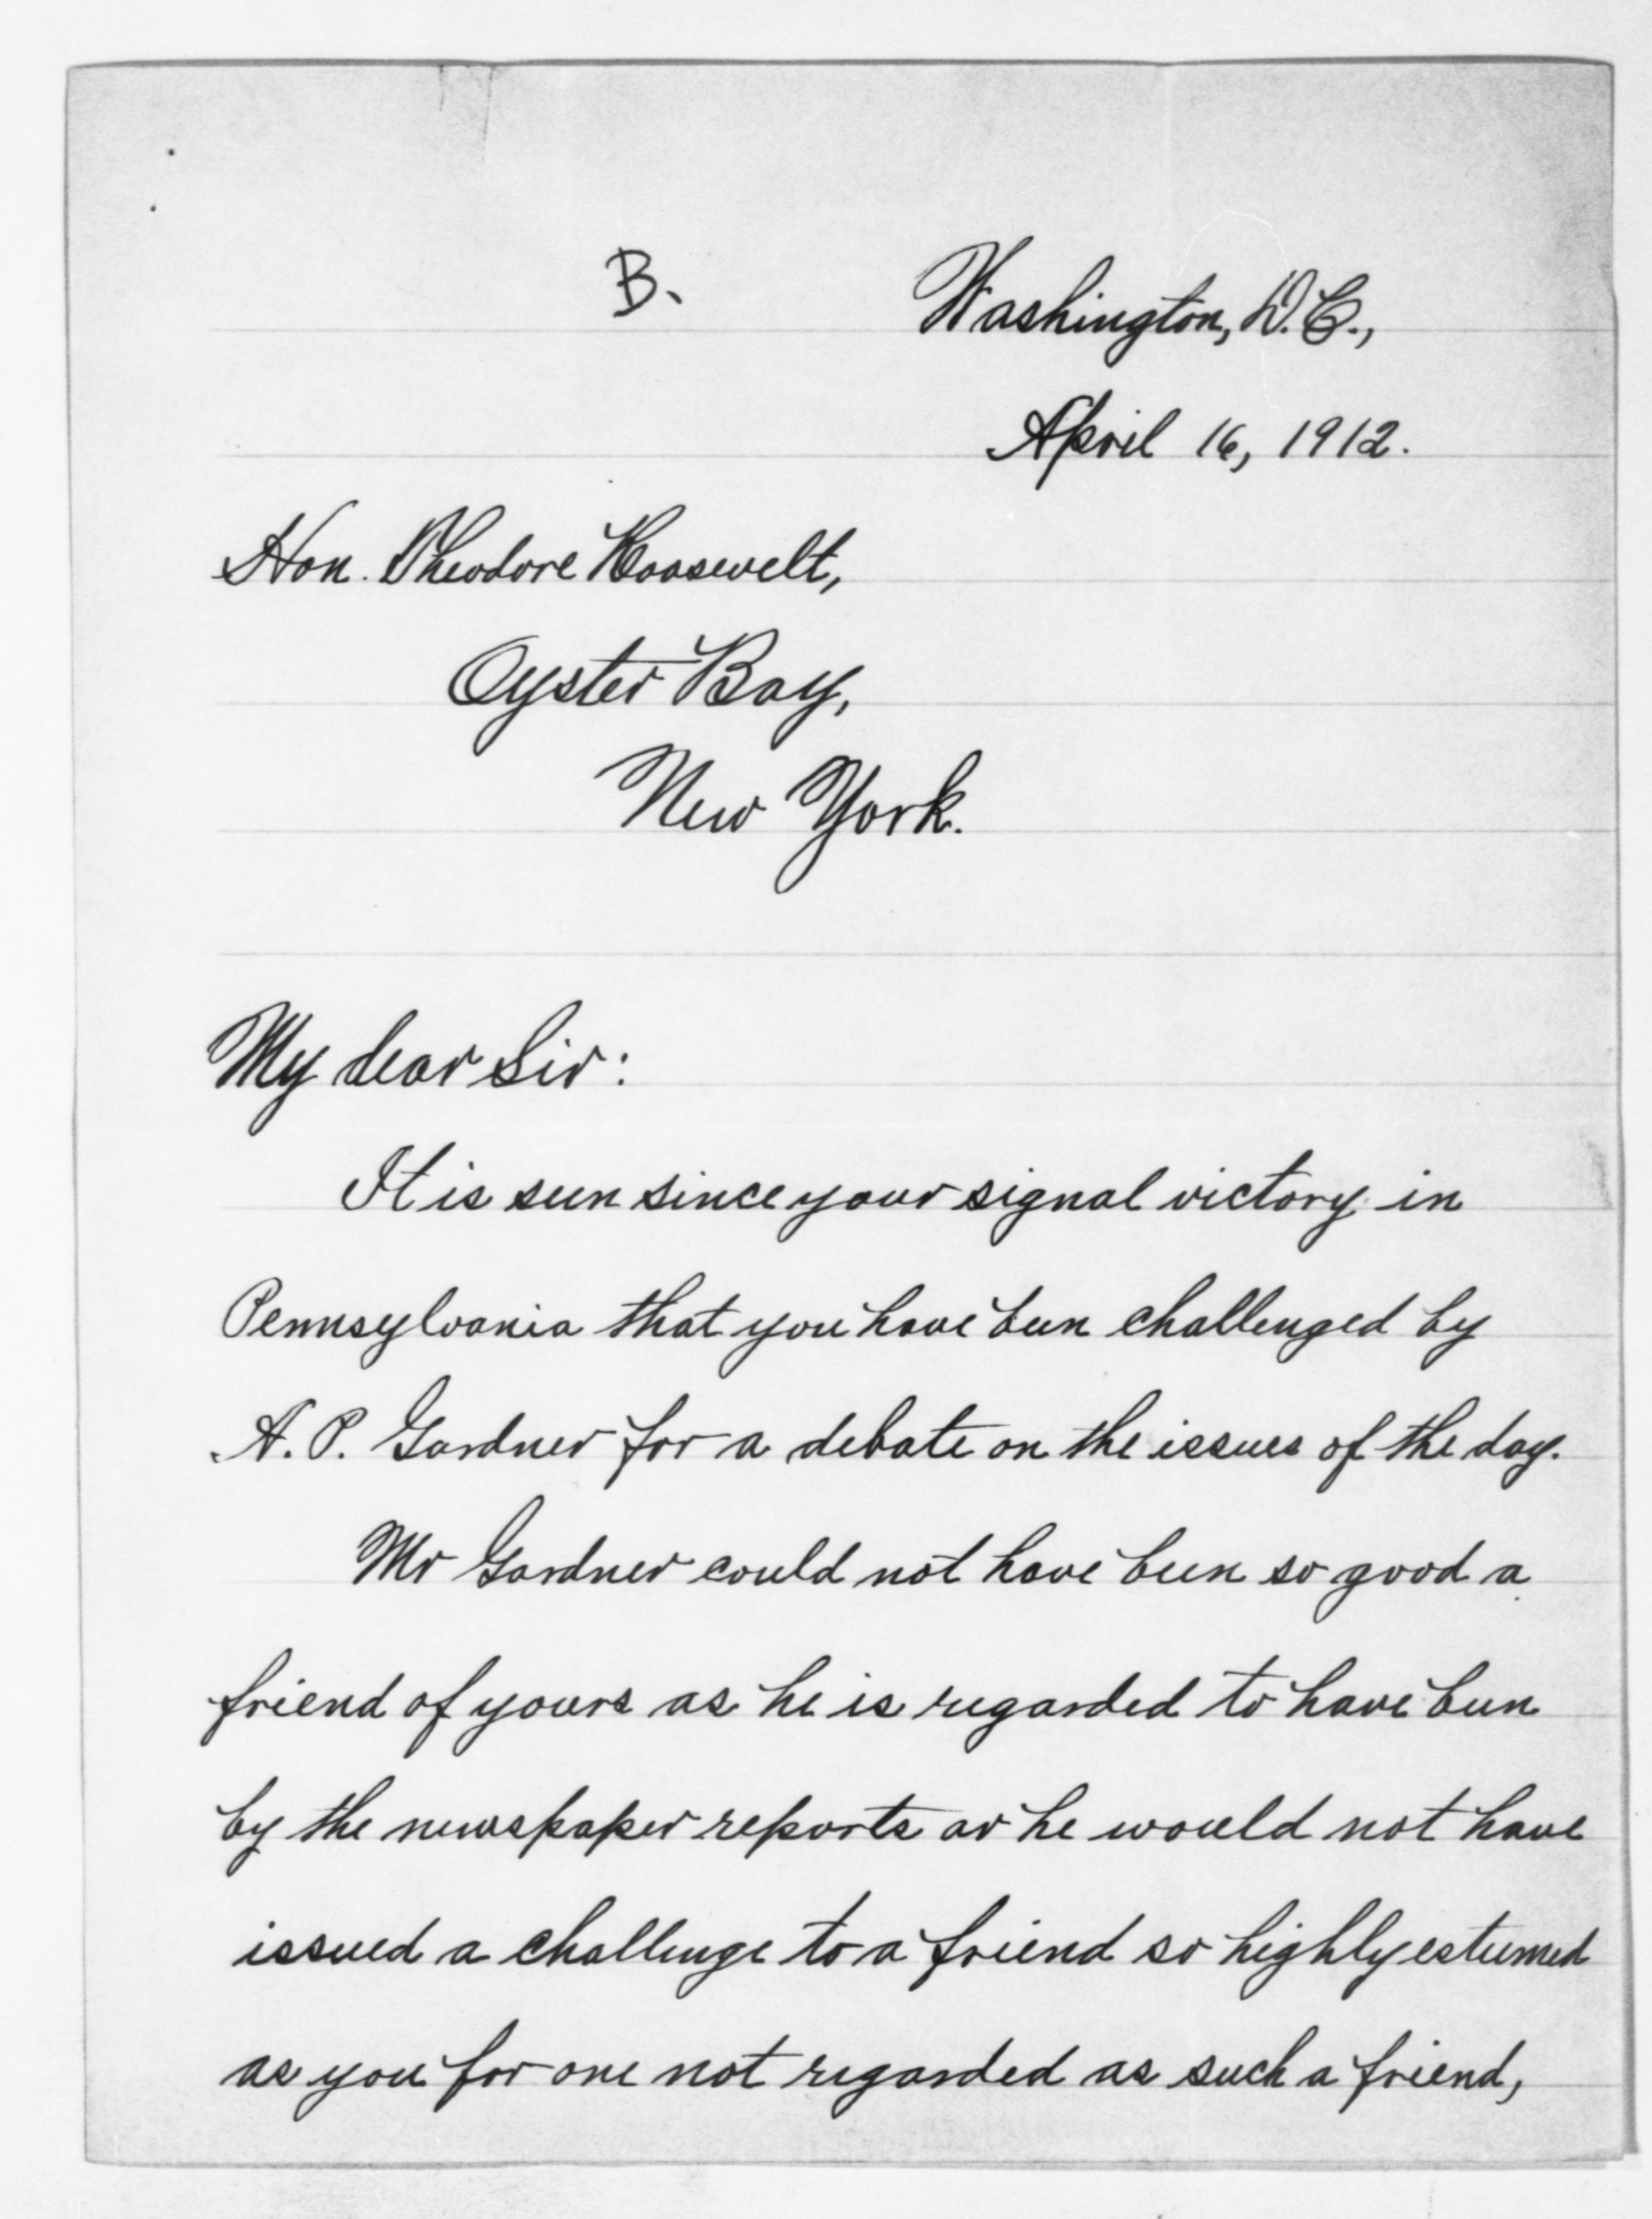 B.
Washington, D.C.,
April 16, 1912.
Hon. Theodore Roosevelt,
Oyster Bay,
New York.
My dear Sir:
It is seen since your signal victory in
Pennsylvania that you have been challenged by
A. P. Gardner for a debate on the issues of the day.
Mr Gardner could not have been so good a
friend of yours as he is regarded to have been
by the newspaper reports or he would not have
issued a challenge to a friend so highly esteemed
as you for one not regarded as such a friend,